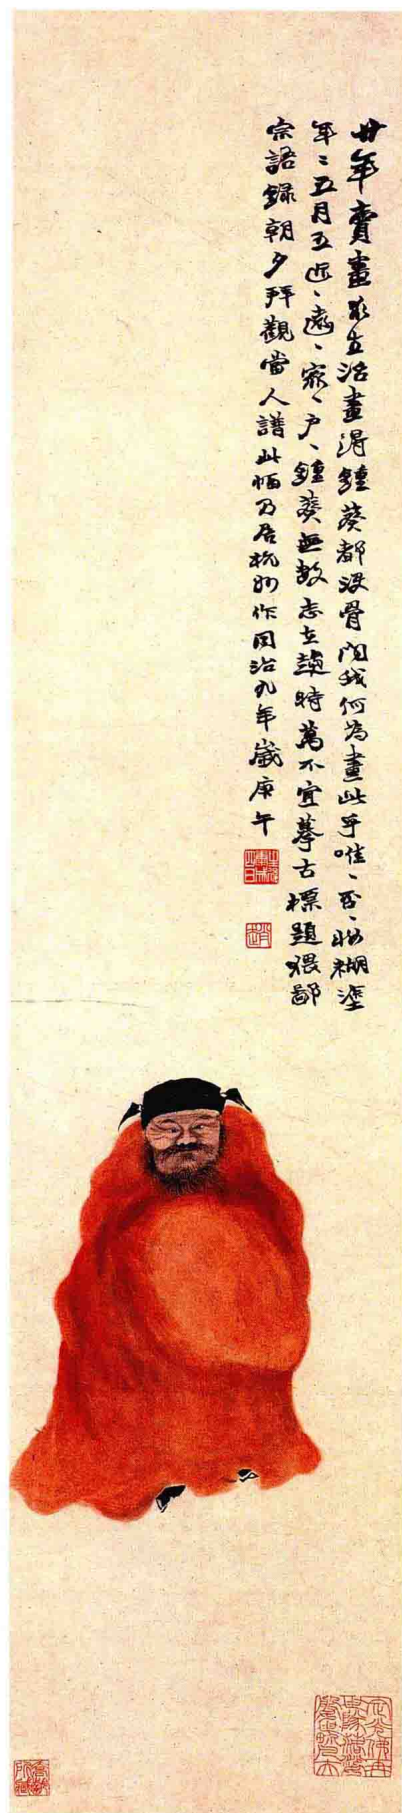 廿年賣畫求生活畫得鍾葵都沒骨問我何為畫此乎唯、否、將糊塗
年〻五月五近、遠、家、户、鍾葵無數志在趨時萬不宜摹古標題猥鄙
宗語錄朝夕拜觀當人譜此幅乃居杭州作同治九年歲庚午
趙